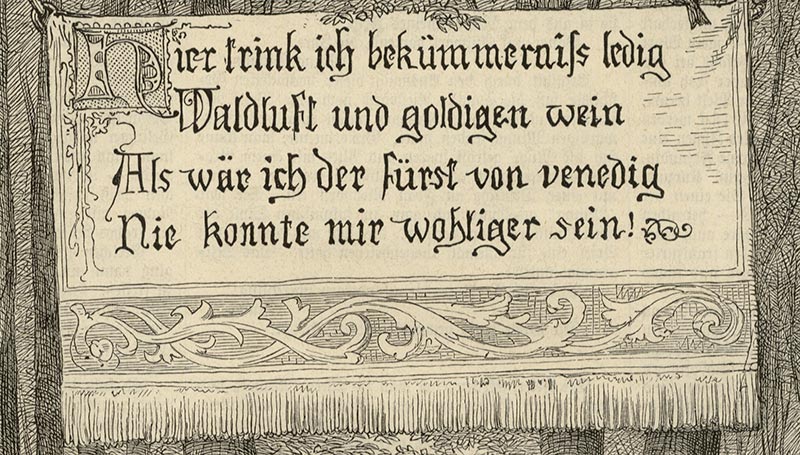 Hier trink ich bekümmerniſs ledig
Waldluft und goldigen wein
Als wär ich der Fürst von venedig
Nie konnte mir wohliger sein!